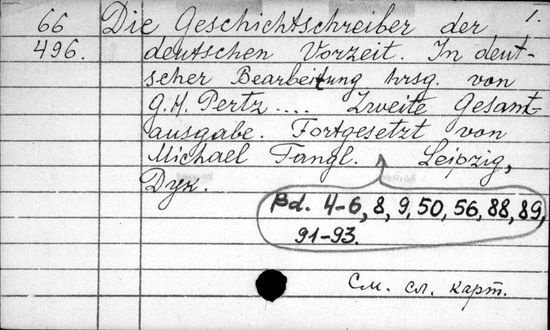 1.
66 Die Geschichtschreiber der
496. deutschen Vorzeit. In deut-
scher Bearbeitung hrsg. von
G.H. Pertz .... Zweite Gesamt-
ausgabe. Fortgesetzt von
Michael Tangl. Leipzig,
Dyk.
Bd. 4-6, 8, 9, 50, 56, 88, 89,
91-93.
См. сл. карт.